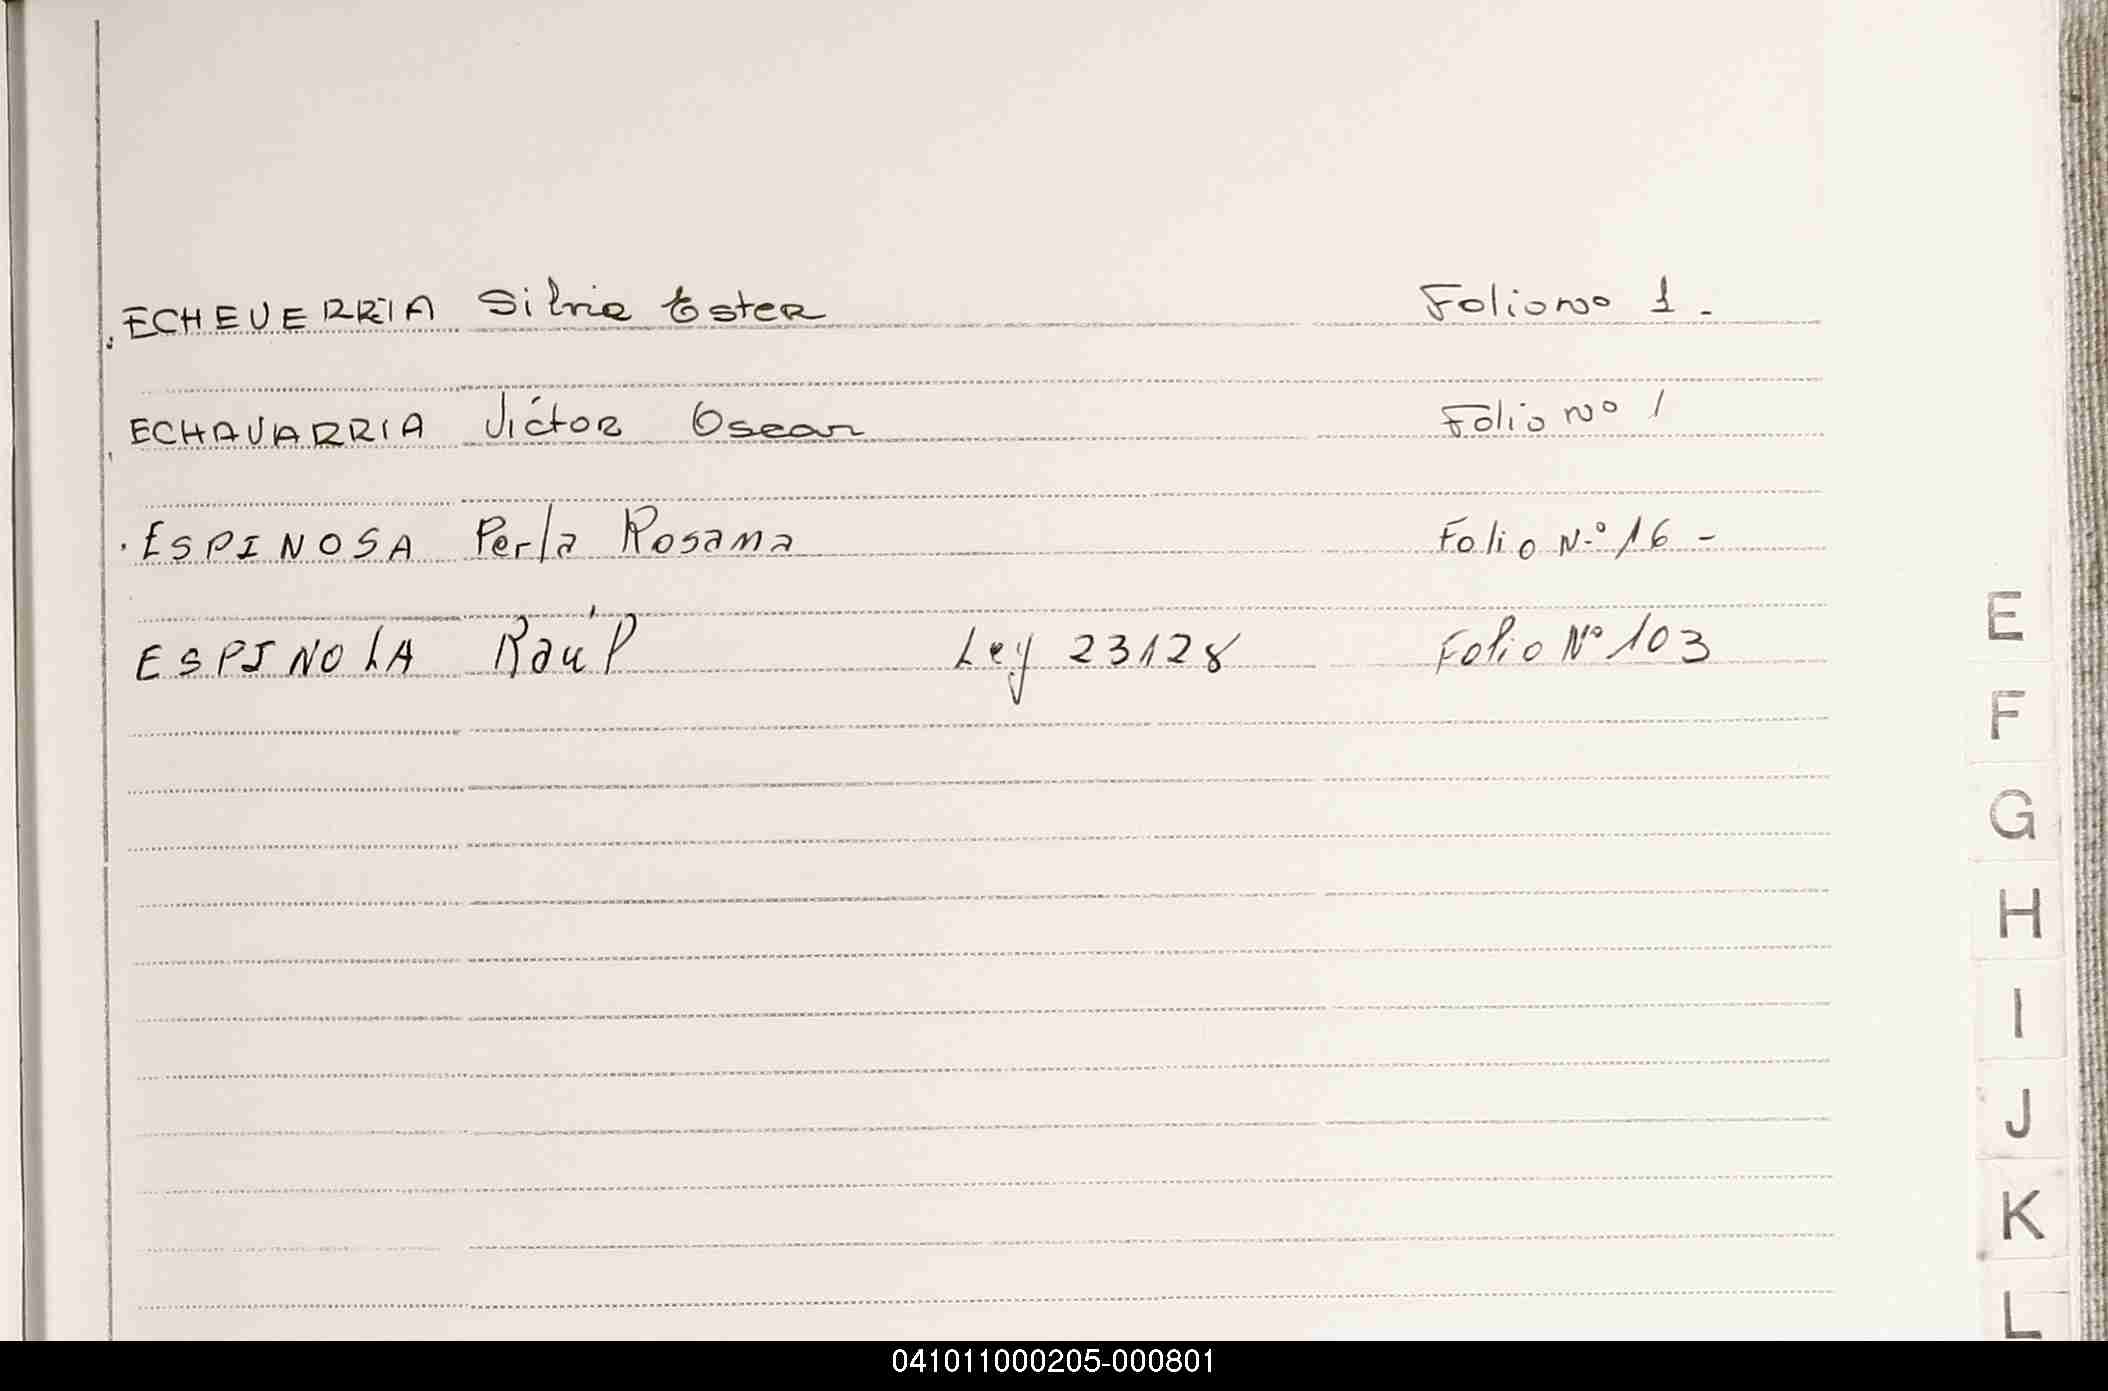 ECHEVERRIA Silvia Ester Folio No 1.
ECHAVARRIA Víctor Oscar Folio No 1
ESPINOSA Perla Rosana Folio N.º 16 -
ESPINOLA Raúl Ley 23128 Folio Nº 103
E
F
G
H
I
J
K
L
041011000205-000801